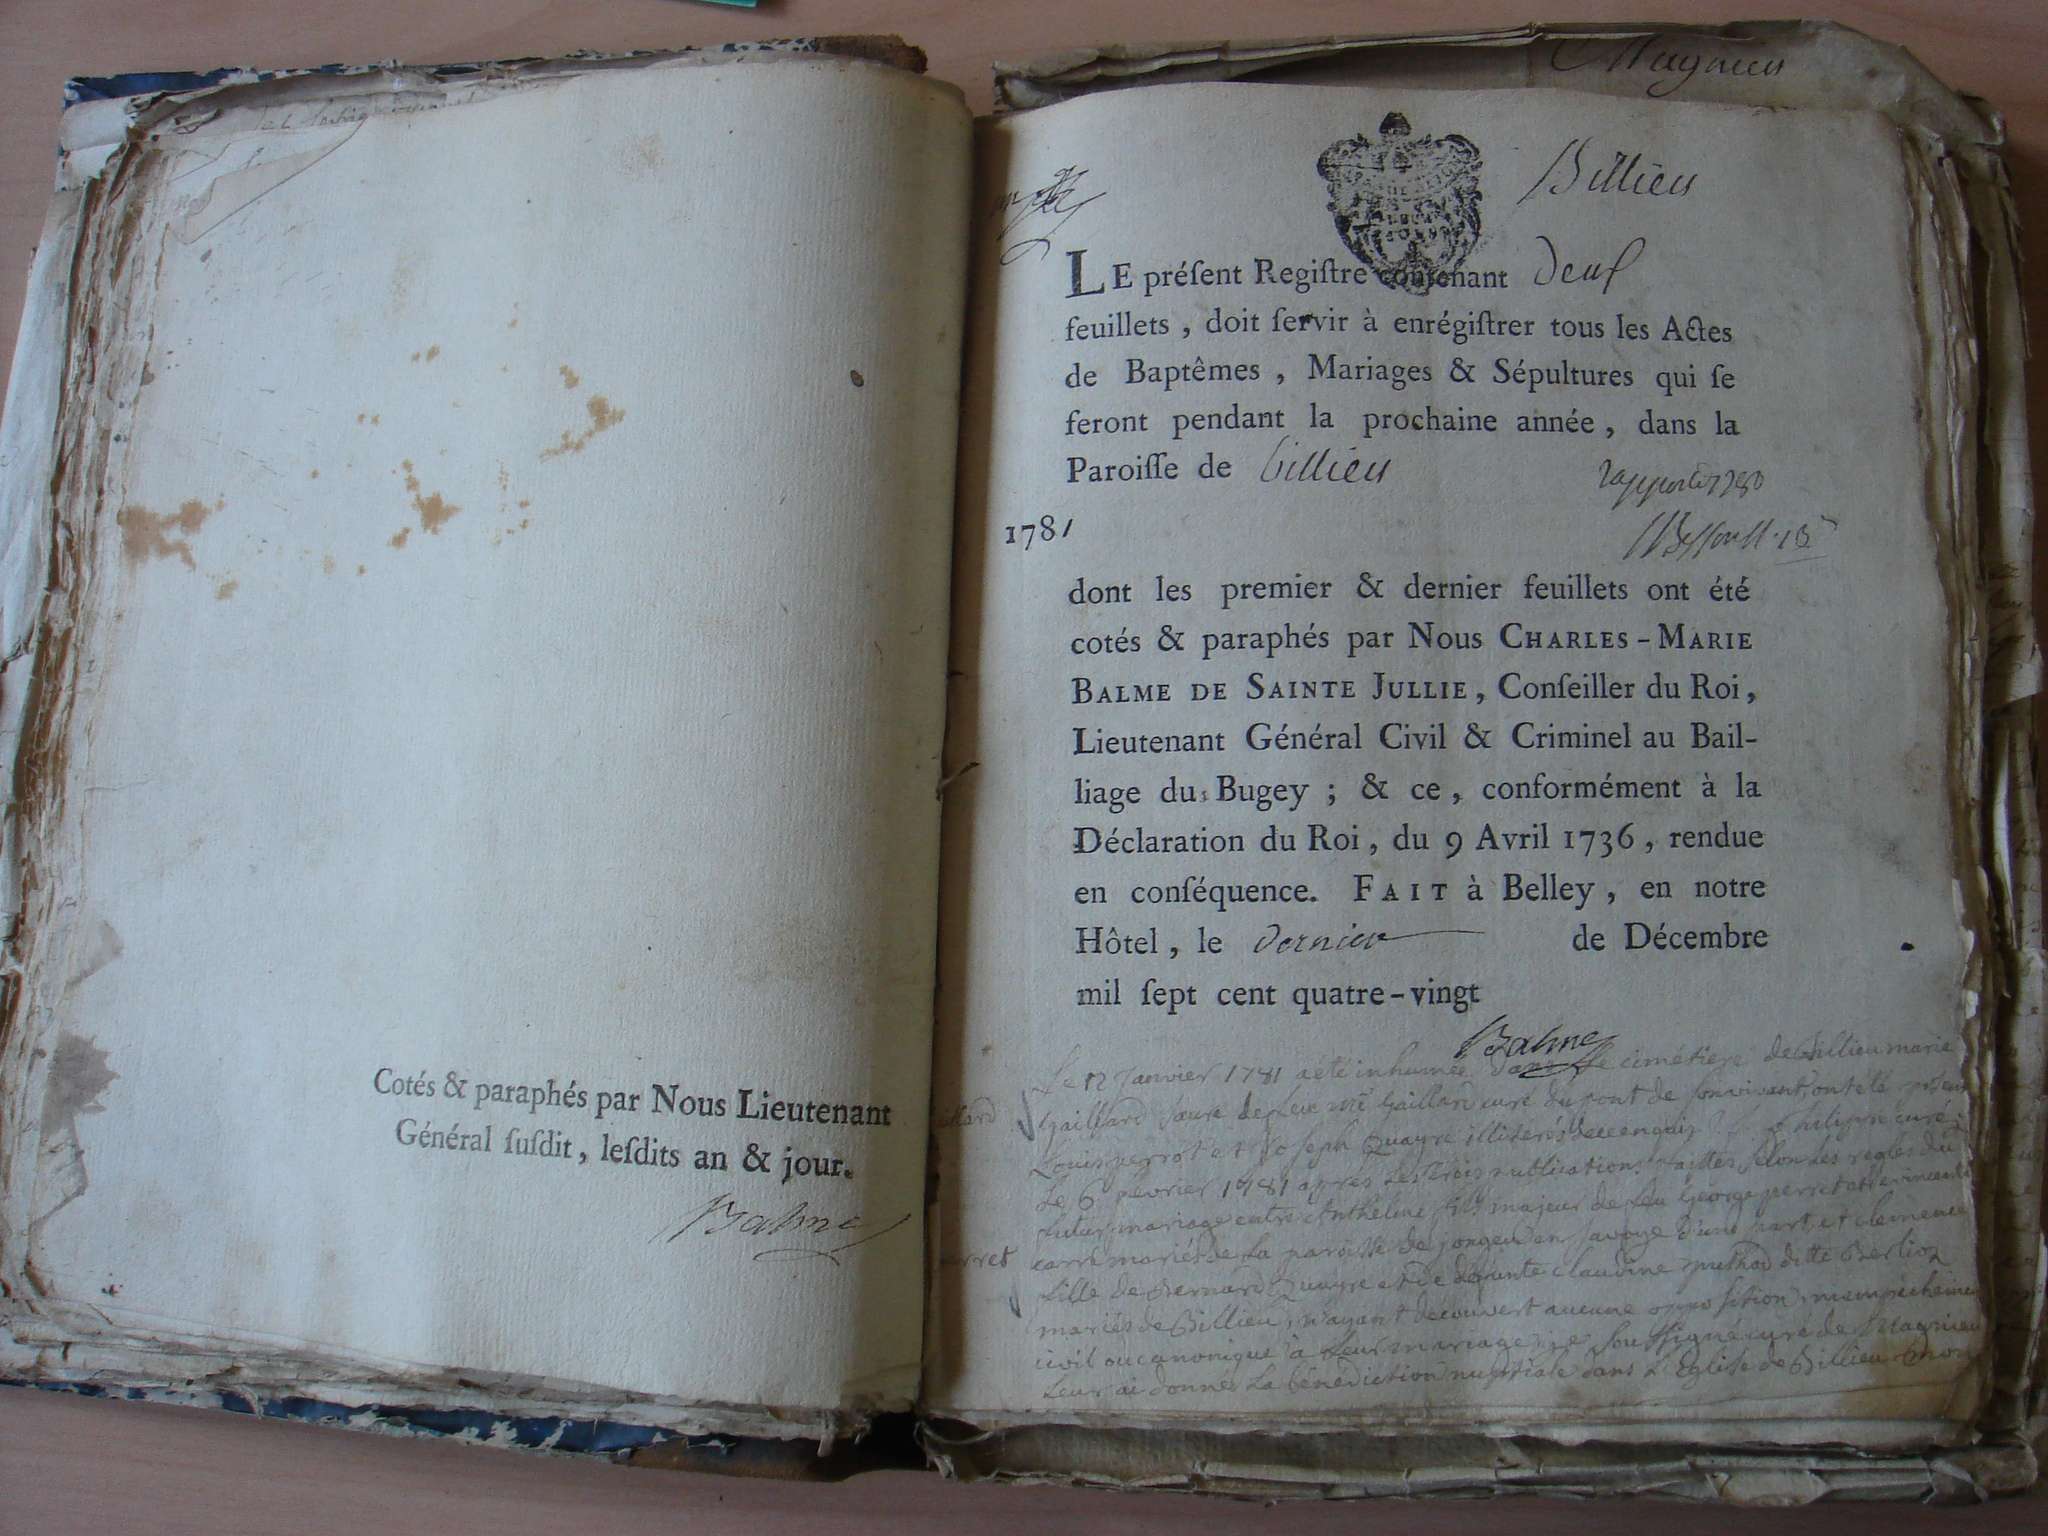 Cotés & paraphés par Nous Lieutenant
Général ſuſdit, leſdits an & jour.
Balme
Magnieu
Billieu
LE préſent Regiſtre contenant deux
feuillets, doit ſervir à enrégiſtrer tous les Actes
de Baptêmes, Mariages & Sépultures qui ſe
feront pendant la prochaine année, dans la
Paroiſſe de billieu
1781
dont les premier & dernier feuillets ont été
cotés & paraphés par Nous CHARLES-MARIE
BALME DE SAINTE JULLIE, Conſeiller du Roi,
Lieutenant Général Civil & Criminel au Bail-
liage du Bugey ; & ce, conformément à la
Déclaration du Roi, du 9 Avril 1736, rendue
en conſéquence. FAIT à Belley, en notre
Hôtel, le dernier de Décembre
mil ſept cent quatre-vingt
Balme
Le 12 Janvier 1781 a été inhumée dans le cimétiere de Billieu marie
Gaillard Gaillard curé du pont de
Louis perrot et Joseph Quayre curé
Le 6 fevrier 1781 apres les trois publications faittes selon les regles du
futur mariage entre Anthelme fils majeur de feu George perret et
mariés de la paroisse de en Savoye d'une part, et clemence
fille de Bernard Quayre et de defunte claudine ditte Berlioz
mariés de Billieu, n'ayant decouvert aucune opposition,
civil ou canonique à leur mariage je soussigné curé de Magnieu
leur ai donné la bénédiction nuptiale dans l'Eglise de Billieu